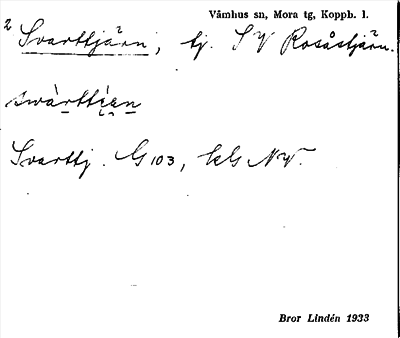 Våmhus sn, Mora tg, Koppb. l.
2 Svarttjärn, tj. SV Rosåstjärn.
swàrttiεn
Svarttj. G 103, bl G NV.
Bror Lindén 1933